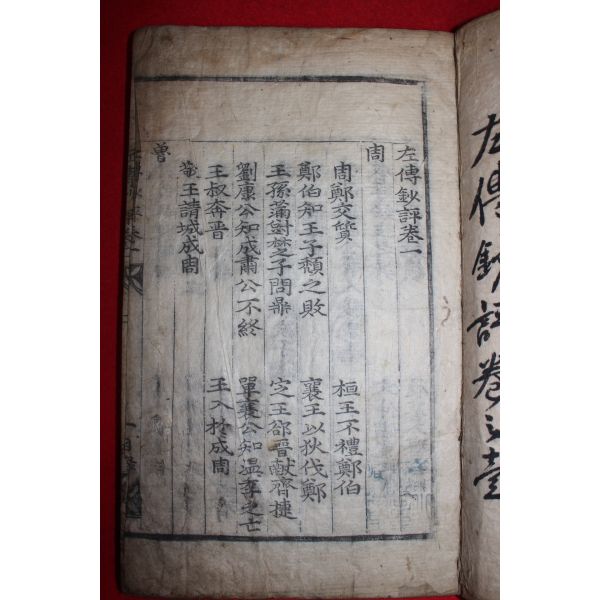 左傳鈔評卷之壹
左傳鈔評卷一
周
周鄭交質 桓王不禮鄭伯
鄭伯知王子頽之敗 襄王以狄伐鄭
王孫滿對楚子問鼎 定王郤晉献齊捷
劉康公知成肅公不終 單襄公知温季之亡
王叔奔晉 王入於成周
敬王請城成周
魯